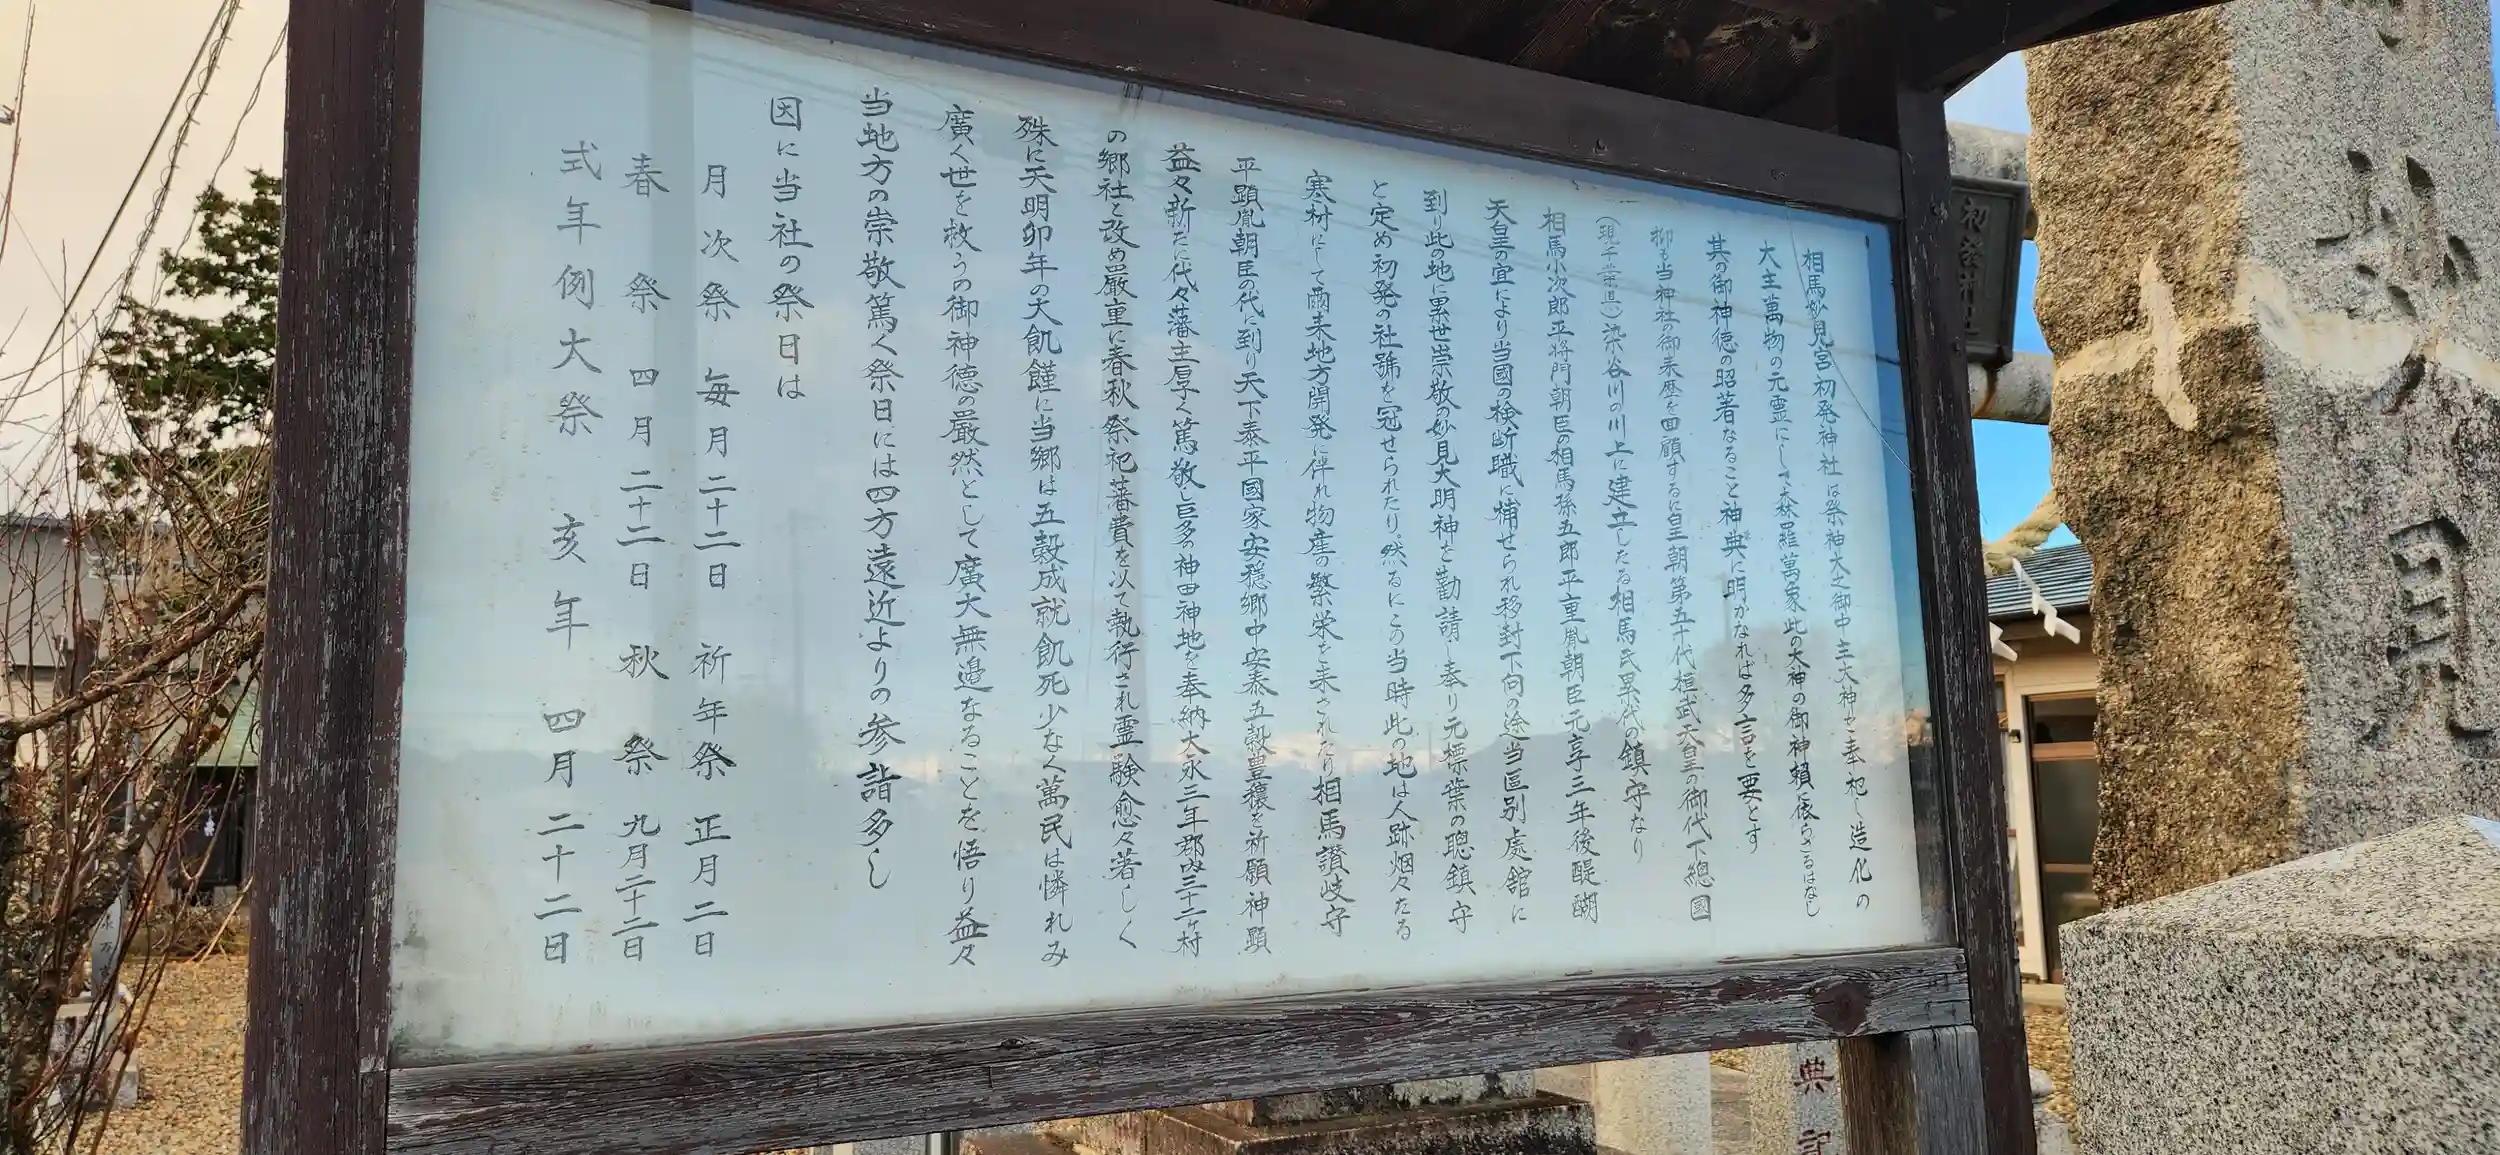 相馬妙見宮初発神社は祭神天之御中主大神を奉祀し造化の
大主萬物の元霊にして森羅萬象此の大神の御神頼に依らざるはなし
其の御神徳の昭著なること神典に明かなれば多言を要とす
抑も当神社の御来歴を回顧するに皇朝第五十代桓武天皇の御代下總國
(現千葉県)染谷川の川上に建立したる相馬氏累代の鎮守なり
相馬小次郎平将門朝臣の相馬孫五郎平重胤朝臣元享三年後醍醐
天皇の宣により当國の検断職に補せられ移封下向の途当區別處舘に
到り此の地に累世崇敬の妙見大明神を勧請し奉り元標葉の聰鎮守
と定め初発の社號を冠せられたり。然るにこの当時此の地は人跡烟々たる
寒村にして爾来地方開発に伴れ物産の繁栄を来されたり相馬讃岐守
平顕胤朝臣の代に到り天下泰平國家安穏郷中安泰五穀豊穣を祈願神顕
益々新たに代々藩主厚く篤敬し巨多の神田神地を奉納大永三年郡内三十二ヶ村
の郷社と改め厳重に春秋祭祀藩費を以て執行され霊験愈々著しく
殊に天明卯年の大飢饉に当郷は五穀成就飢死少なく萬民は憐れみ
廣く世を救うの御神徳の厳然として廣大無邉なることを悟り益々
当地方の崇敬篤く祭日には四方遠近よりの参詣多し
因に当社の祭日は
月次祭 毎月二十二日 祈年祭 正月二日
春祭 四月二十二日 秋祭 九月二十二日
式年例大祭 亥年 四月二十二日
初發神社
妙見
典